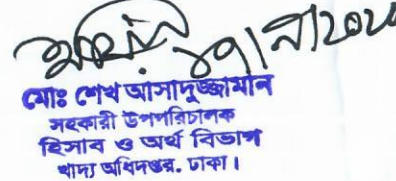 মোঃ শেখ আসাদুজ্জামান
সহকারী উপপরিচালক
হিসাব ও অর্থ বিভাগ
খাদ্য অধিদপ্তর. ঢাকা।